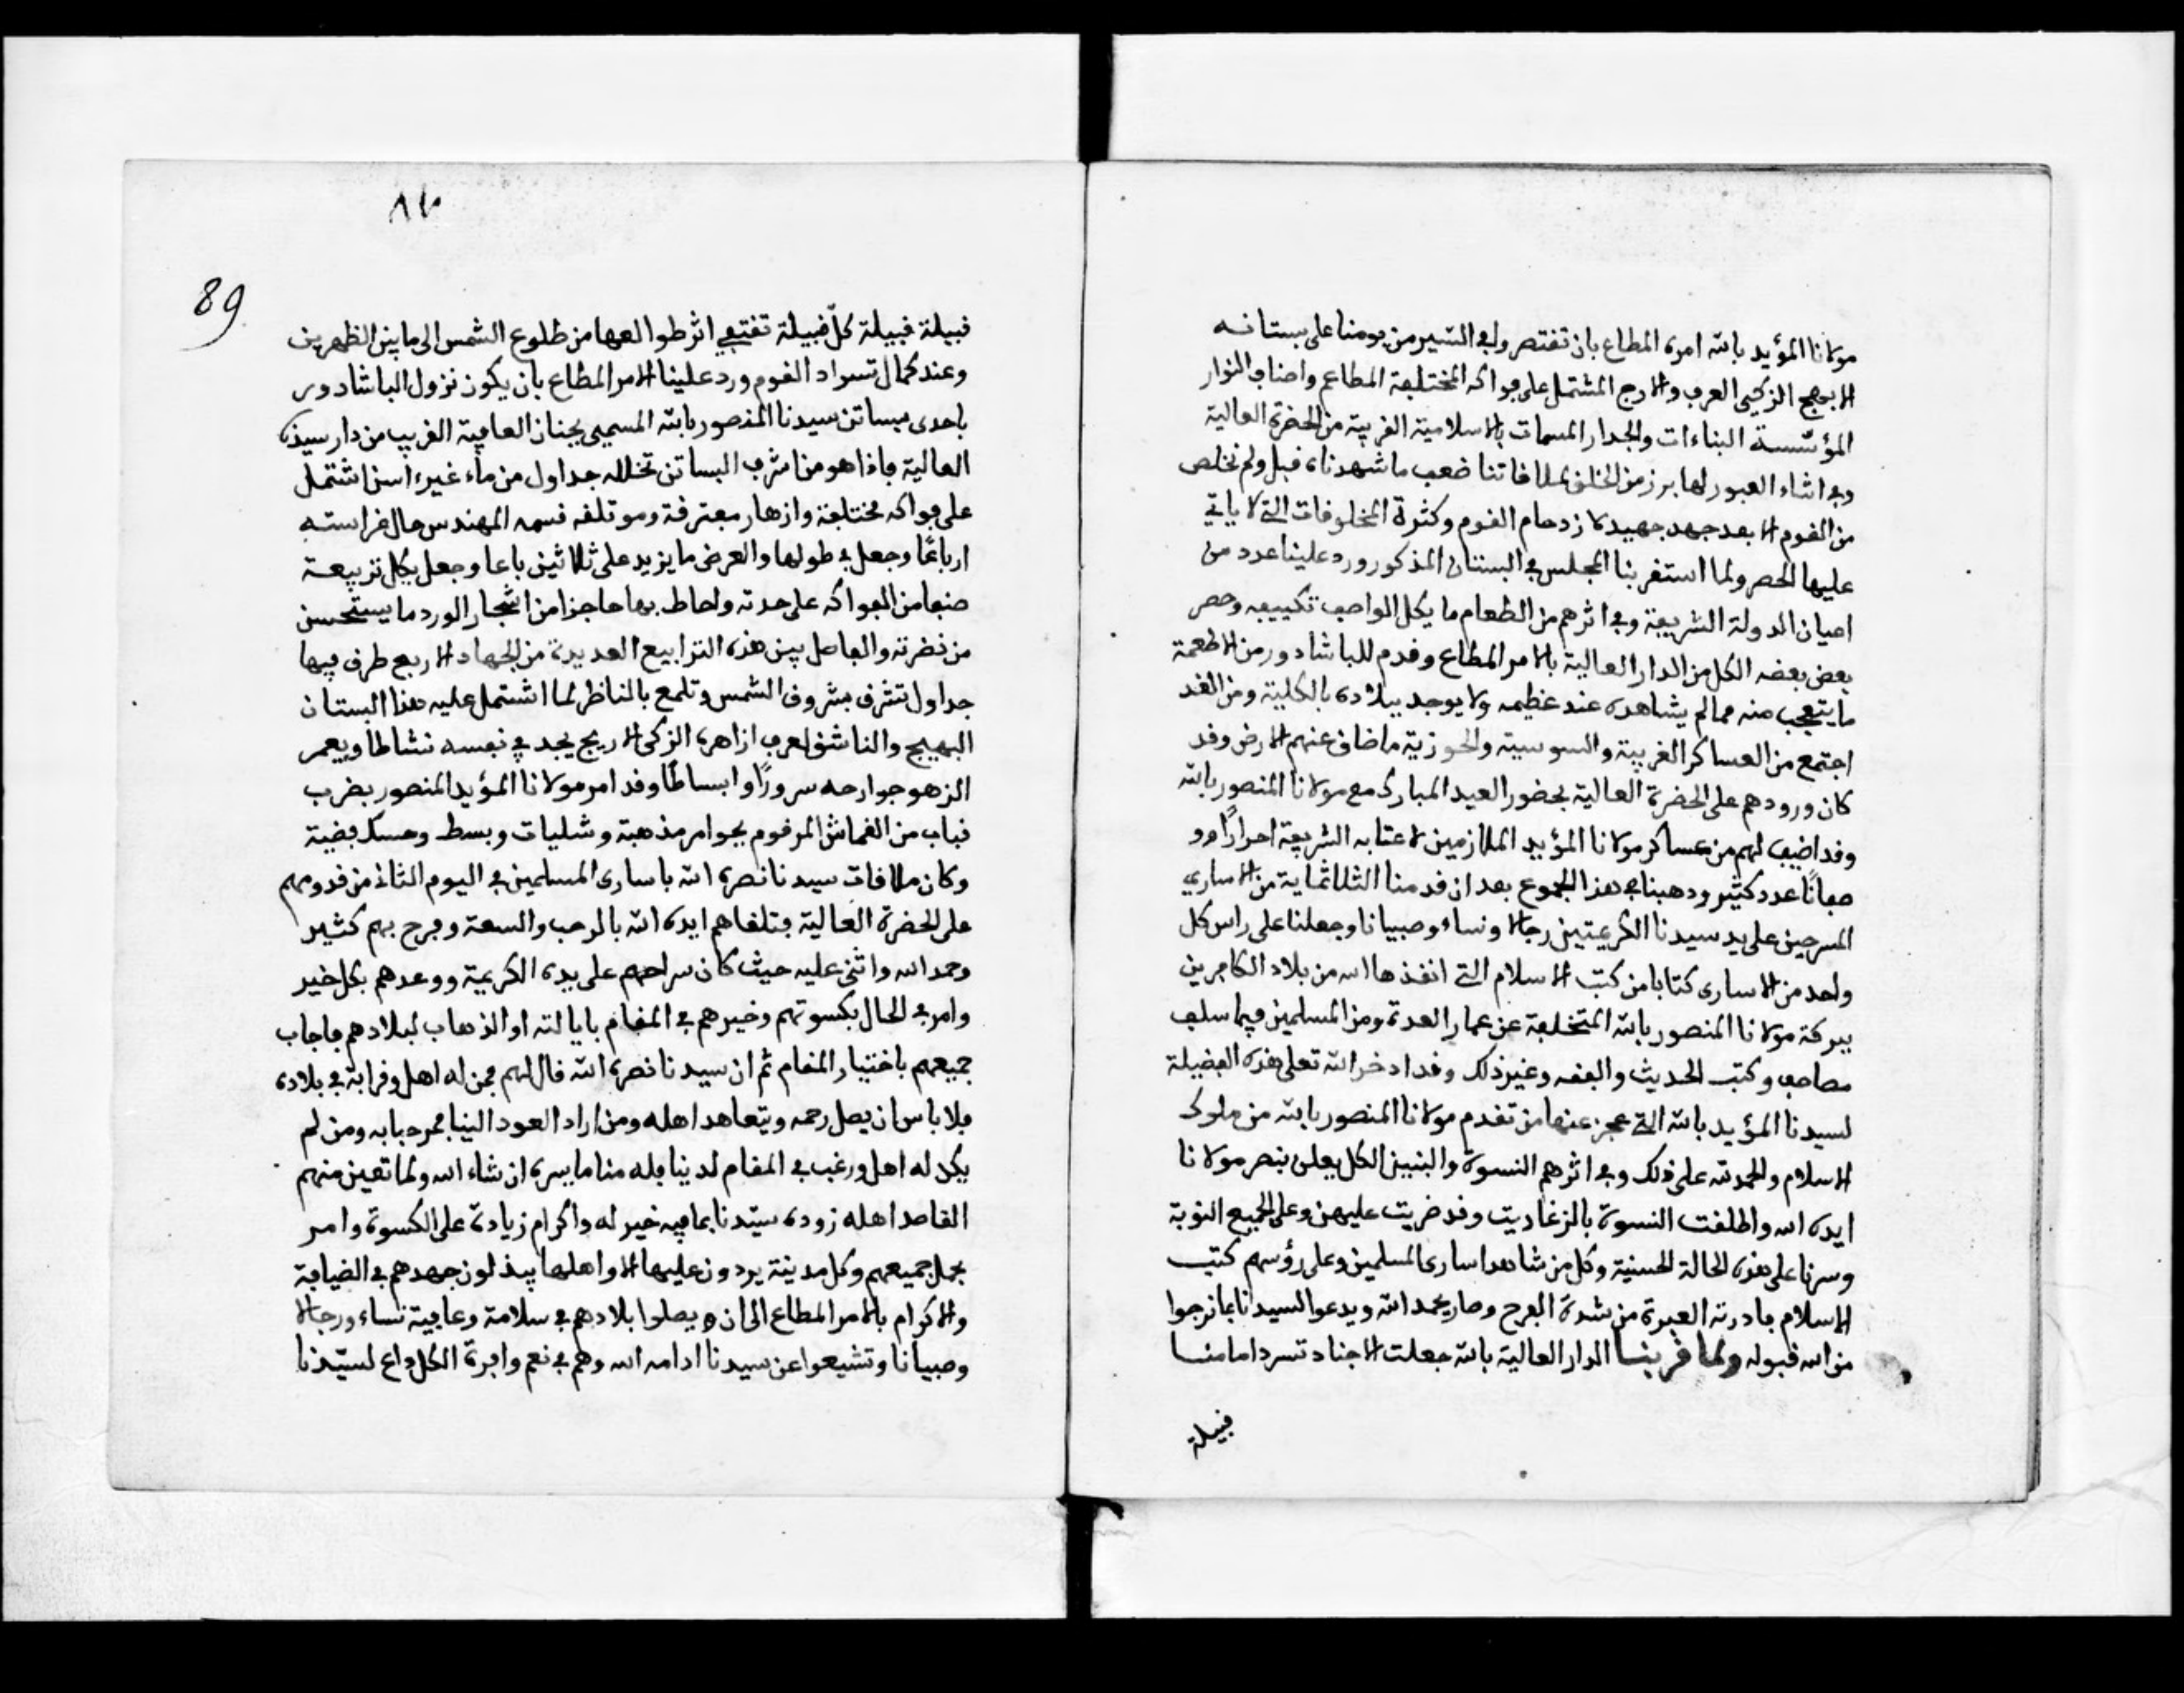 مولانا المؤيد بالله امره المطاع بان نقتصر في السير من يومنا على بستانه
الابهج الزكي العرف والارج المشتمل على فواكه المختلفة المطاعم واصناف النوار
المؤسسة البناءات والجدار المسمات بالاسلامية القريبة من الحضرة العالية
وفي اثناء العبور لها برز من الخلق لملاقاتنا ضعف ما شهدناه قبل ولم نخلص
من القوم الا بعد جهد جهيد لازدحام القوم وكثرة المخلوقات التي لا ياتي
عليها الحصر ولما استقر بنا المجلس في البستان المذكور ورد علينا عدد من
اعيان الدولة الشريفة وفي اثرهم من الطعام ما يكل الواصف تكييفه وحصر
بعض بعضه الكل من الدار العالية بالامر المطاع وقدم للباشادور من الاطعمة
ما يتعجب منه مما لم يشاهده عند عظيمه ولا يوجد ببلاده بالكلية ومن الغد
اجتمع من العساكر الغربية والسوسية والحوزية ما ضاق عنهم الارض وقد
كان ورودهم على الحضرة العالية بحضور العيد المبارك مع مولانا المنصور بالله
وقد اضيف لهم من عساكر مولانا المؤيد الملازمين لاعتابه الشريفة احرارا وو
صفانا عدد كثير ودهبنا في هذا الجموع بعد ان قدمنا الثلاثماية من الاساري
المسرحين على يد سيدنا الكريمتين رجالا ونساء وصبيانا وجعلنا على راس كل
واحد من الاسارى كتابا من كتب الاسلام التي انقذها الله من بلاد الكافرين
ببركة مولانا المنصور بالله المتخلفة عن عمار العدوة ومن المسلمين فيما سلف
مصاحف وكتب الحديث والفقه وغير ذلك وقد ادخر الله تعلى هذه الفضيلة
لسيدنا المؤيد بالله التي عجز عنها من تقدم مولانا المنصور بالله من ملوك
الاسلام والحمد لله على ذلك وفي اثرهم النسوة والبنين الكل يعلن بنصر مولانا
ايده الله واطلقت النسوة بالزغاريت وقد ضربت عليهن وعلى الجميع النوبة
وسرنا على هذه الحالة الحسنية وكل من شاهد اسارى المسلمين وعلى رؤسهم كتب
الاسلام بادرته العبرة من شدة الفرح وصار يحمد الله ويدعوا لسيدنا بما نرجوا
من الله قبوله ولما قربنا الدار العالية بالله جعلت الاجناد تسرد امامنا
قبيلة
89
قبيلة قبيلة كل قبيلة تقتفي اثر طوالعها من طلوع الشمس الى ما بين الظهرين
وعند كمال تسراد القوم ورد علينا الامر المطاع بان يكون نزول الباشادور
باحدى بساتن سيدنا المنصور بالله المسمى بجنان العافية القريب من دار سيدنا
العالية فاذا هو من اشرف البساتن تخلله جداول من ماء غير ءاسن اشتمل
على فواكه مختلفة وازهار مفترقة وموتلفه قسمه المهندس حال غراسته
ارباعا وجعل في طولها والعرض ما يزيد على ثلاثين باعا وجعل بكل تربيعة
صنفا من الفواكه على حدته واحاط بها حاجزا من اشجار الورد ما يستحسن
من نضرته والفاصل بين هذه الترابيع العديدة من الجهاد الاربع طرق فيها
جداول تشرق بشروق الشمس وتلمع بالناظر لما اشتمل عليه هذا البستان
البهيج والناشق لعرف ازاهره الزكى الاريج يجد في نفسه نشاطا ويعمر
الزهو جوارحه سرورا وابساطا وقد امر مولانا المؤيد المنصور بضرب
قباب من القماش المرقوم بجوامر مذهبة وشليات وبسط وحسك فضية
وكان ملاقات سيدنا نصره الله باسارى المسلمين في اليوم الثاني من قدومهم
على الحضرة العالية فتلقاهم ايده الله بالرحب والسعة وفرح بهم كثير
وحمد الله واثنى عليه حيث كان سراحهم على يده الكريمة ووعدهم بكل خير
وامر في الحال بكسوتهم وخيرهم في المقام بايالته او الذهاب لبلادهم فاجاب
جميعهم باختيار المقام ثم ان سيدنا نصره الله قال لهم فمن له اهل وقرابة في بلاده
فلا باس ان يصل رحمه ويتعاهد اهله ومن اراد العود الينا فمرحبا به ومن لم
يكن له اهل ورغب في المقام لدينا فله منا ما يسره ان شاء الله ولما تعين منهم
القاصد اهله زوده سيدنا بما فيه خير له واكرام زيادة على الكسوة وامر
بحمل جميعهم وكل مدينة يردون عليها الا واهلها يبذلون جهدهم في الضيافة
والاكرام بالامر المطاع الى ان يصلوا بلادهم في سلامة وعافية نساء ورجالا
وصبيانا وتشيعوا عن سيدنا ادامه الله وهم في نعم وافرة الكل داع لسيدنا